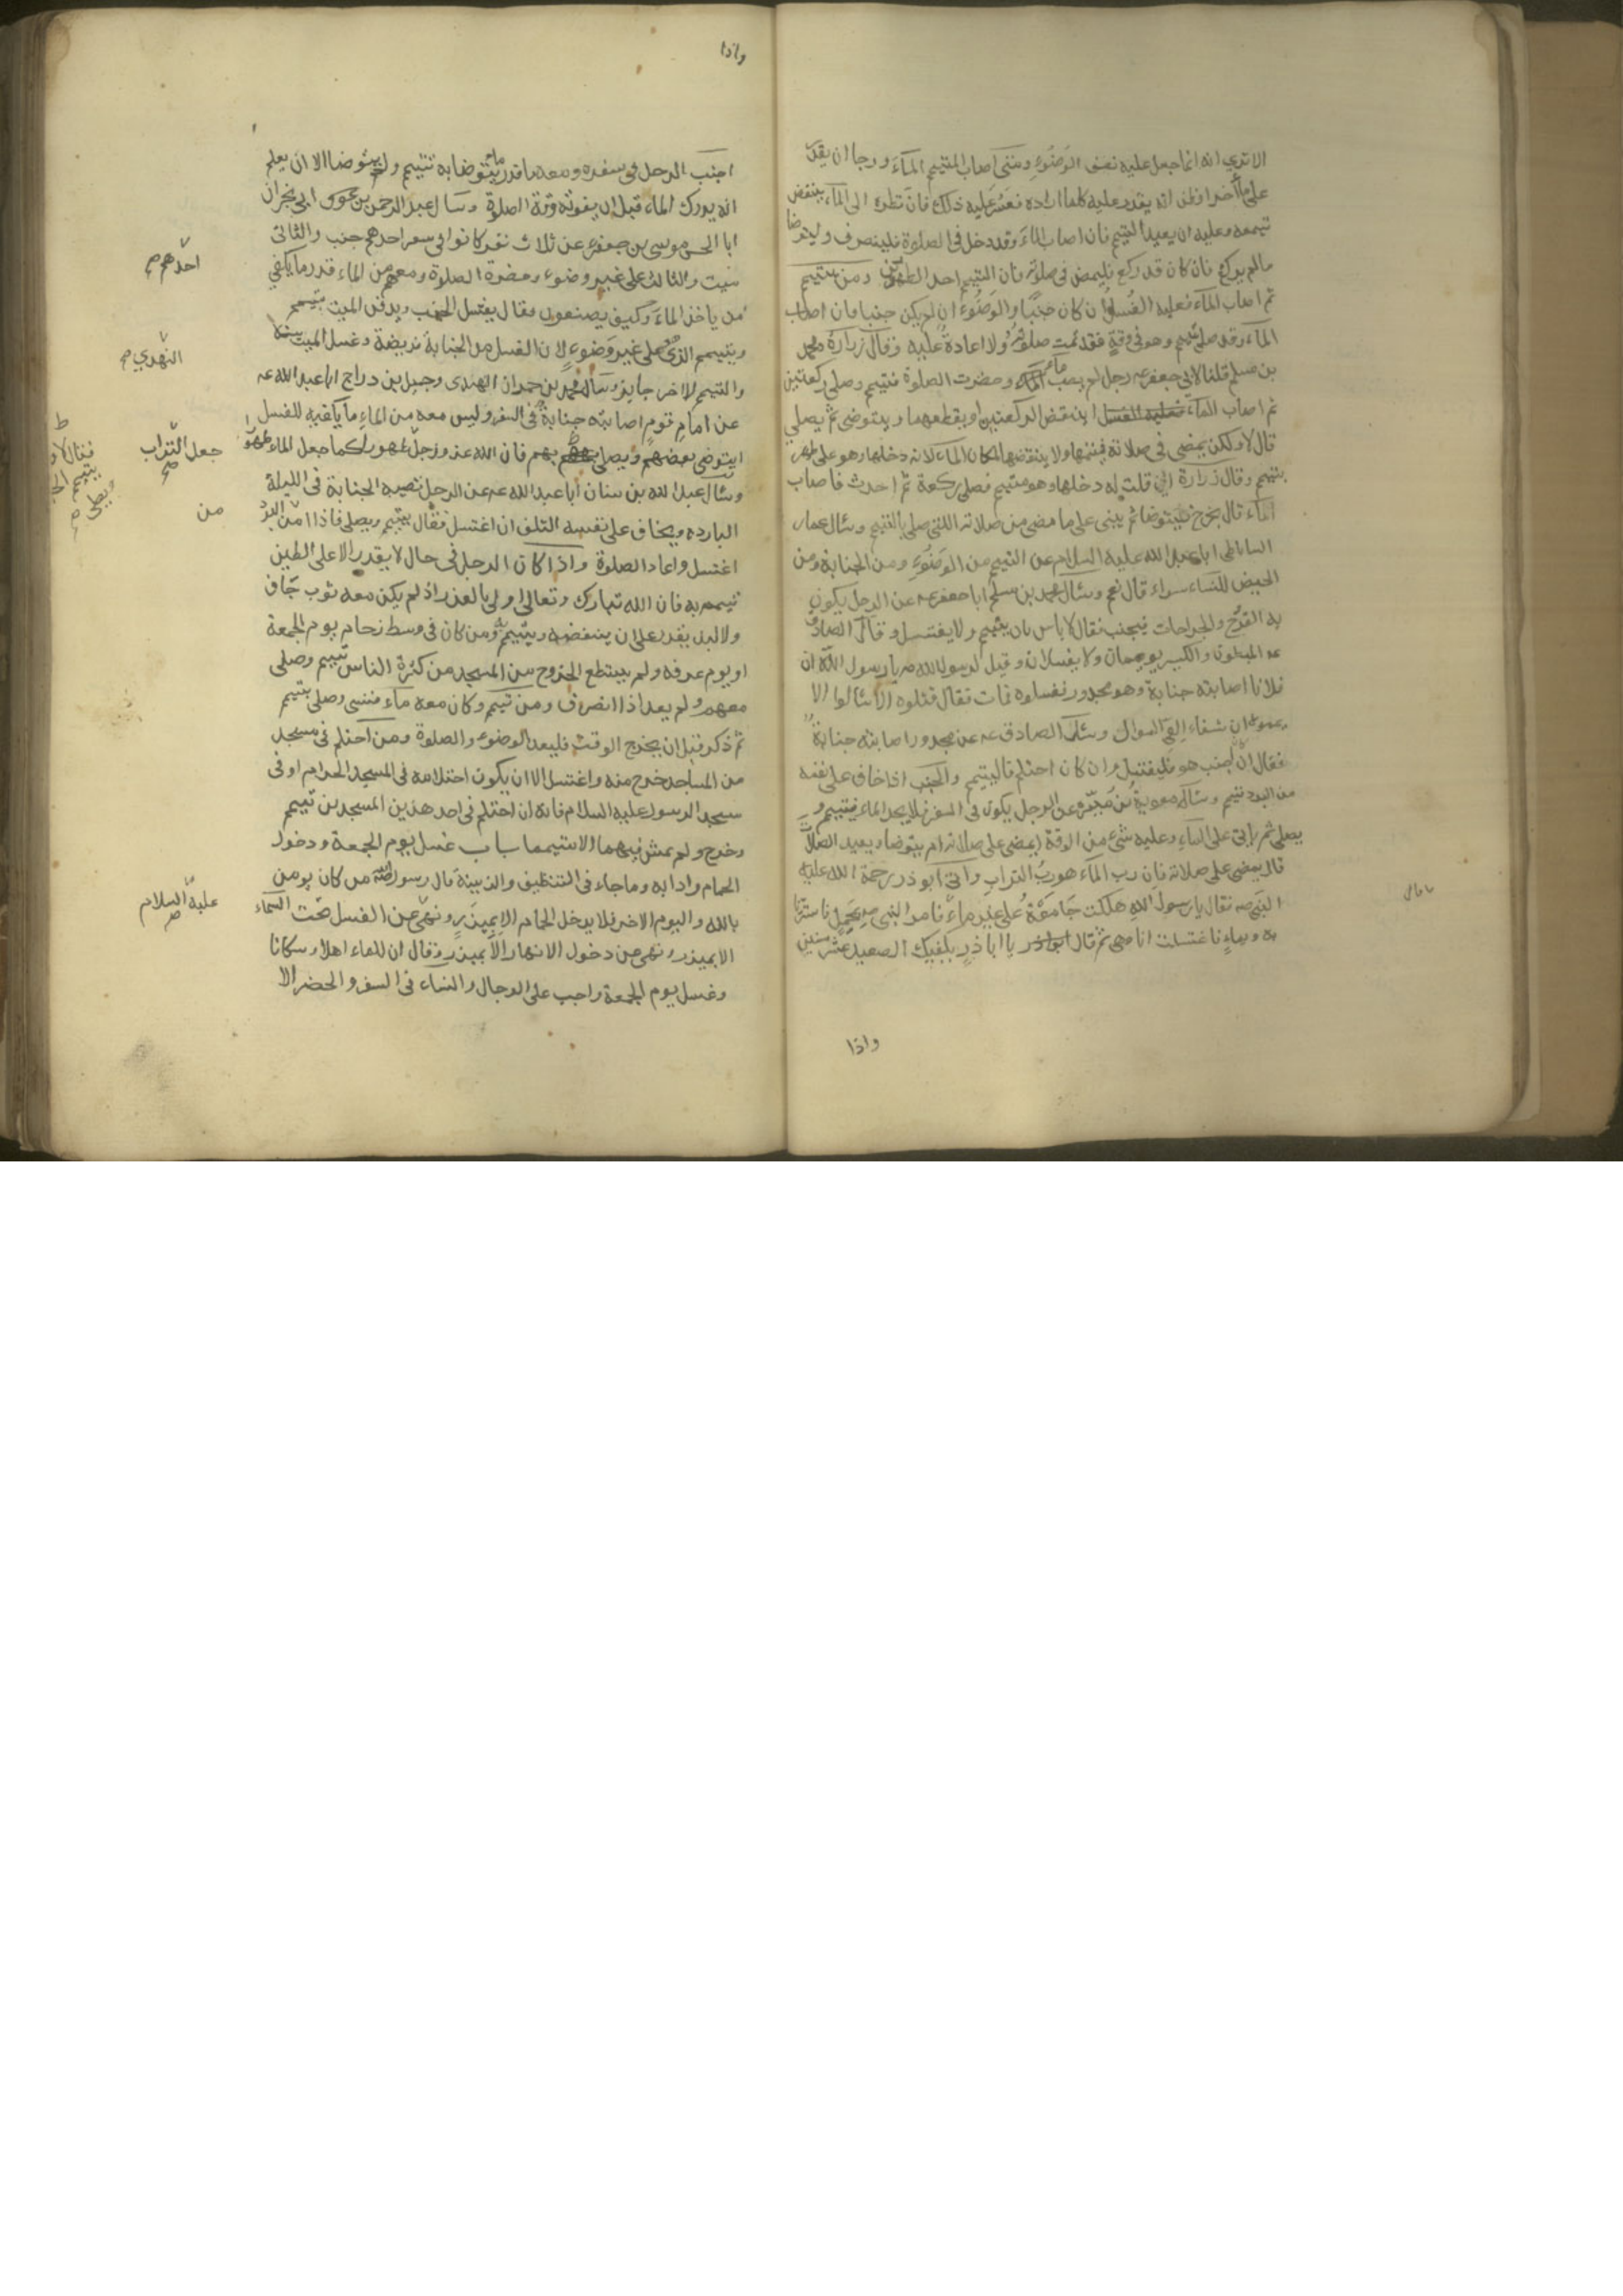 الا تري انه انما جعل عليه نصف الوَضُوءِ ومتى اصاب المتيمم المآءَ ورجا ان يقدر
على ماء آخر او ظن انه يقدر عليه كلما اراده فعَسُرَ عليه ذلك فان نظره الى المآء ينقض
تيممه وعليه ان يعيد التيمم فان اصاب المآءَ وقد دخل فى الصلوة فلينصرف وليتوضا
مالم يركع فان كان قد ركع فليمض فى صلوته فان التيمم احد الطهورين ومن تيمم
ثم اصاب المآءَ فعليه الغُسل ان كان جنبًا والوَضُوءُ ان لم يكن جنبا فان اصاب
المآء وقد صلى بتيمم وهو فى وقتٍ فقد تمت صلوتُهُ ولا اعادةَ عليه وقال زرارة ومحمد
بن مسلم قلنا لابى جعفر عـ رجل لم يصب ماء وحضرت الصلوة فتيمم وصلى ركعتين
ثم اصاب المآء اينقض الركعتين او يقطعهما ويتوضى ثم يصلي
قال لا ولكن يمضى فى صلاته فيتمها ولا ينقضها لمكان المآء لانه دخلها وهو على طهر
بتيمم وقال زرارة قلت له دخلها وهو متيمم فصلى ركعة ثم احدث فاصاب
المآء قال يخرج فيتوضا ثم يبنى على ما مضى من صلاته التى صلى بالتيمم وسئال عمار
الساباطى ابا عبد الله عليه السلام عن التيمم من الوَضُوءِ ومن الجنابة ومن
الحيض للنسآء سواء قال نعم وسئال محمد بن مسلم ابا جعفر عـ عن الرجل يكون
به القَرحُ والجراحات فيجنب فقال لا باس بان يتيمم ولا يغتسل وقال الصادق
عـ المبطون والكسير يوممان ولا يغسلان وقيل لرسول الله صـ يا رسول الله ان
فلانا اصابته جنابة وهو مجدور فغسلوه فمات فقال قتلوه الا سئالوا الا
يمموه ان شفاء العِيّ السوال وسئل الصادق عـ عن مجدور اصابته جنابة
فقال ان اجنب هو فليغتسل وان كان احتلم فاليتيمم والجنب اذا خاف على نفسه
من البرد تيمم وساله معوية بن مَيسَرة عن الرجل يكون فى السفر فلا يجد الماء فيتيمم و
يصلى ثم ياتى على المآء وعليه شئ من الوقت ايمضى على صلاته ام يتوضا ويعيد الصلاة
قال يمضى على صلاته فان رب المآء هو ربُ التراب واتى ابو ذر رحمة الله عليه
النبَى صـ فقال يا رسول الله هلكت جَامَعْتُ على غير ماءٍ فامر النبى صـ بمَحمِلٍ فاستترنا
به وبماءٍ فاغتسلت انا وهى ثم قال يا ابا ذرٍ يكفيك الصعيد عشر سنين
واذا
واذا
اجنب الرجل فى سفره ومعه ماء قدر ما يتوضا به تيمم ولم يتوضا الا ان يعلم
انه يدرك الماء قبل ان يفوته وقت الصلوة وسال عبد الرحمن بن ابى نجران
ابا الحسن موسى بن جعفر عـ عن ثلاث نفر كانوا فى سفر احدهم جنب والثانى
ميت والثالث على غير وضوء وحضرة الصلوة ومعهم من الماء قدر ما يكفي
احدهم صح
من ياخذ المآءَ وكيف يصنعون فقال يغتسل الجنب ويدفن الميت بتيمم
ويتيمم الذى على غير وَضوءٍ لان الغسل من الجنابة فريضة وغسل الميت سنة
والتيمم للاخر جايز وساله محمد بن حمران الهندى وجميل بن دراج ابا عبد الله عـ
النَهدي صح
عن امام قومٍ اصابته جنابة فى السفر وليس معه من الماءِ ما يكفيه للغسل
ايتوضى بعضهم ويصلى بهم فان الله عز وزجلّ كما جعل الماء طهورًا
جعل التراب صح
وسئال عبد الله بن سنان ابا عبد الله عـ عن الرجل تصيبه الجنابة فى الليلة
البارده ويخاف على نفسه التلف ان اغتسل فقال يتيمم ويصلى فاذا امن البرد
من
اغتسل واعاد الصلوة واذا كان الرجل فى حال لا يقدر الا على الطين
تيمم به فان الله تبارك وتعالى اولى بالعذر اذ لم يكن معه ثوب جَاف
ولا لبد يقدر على ان ينفضه ويتيمم به ومن كان فى وسط زحام يوم الجمعة
او يوم عرفه ولم يستطع الخروج من المسجد من كثرة الناس تيمم وصلى
معهم ولم يعد اذا انصرف ومن تيمم وكان معه مآء فنسى وصلى بتيمم
ثم ذكر قبل ان يخرج الوقت فليعد الوضوء والصلوة ومن احتلم فى مسجد
من المساجد خرج منه واغتسل الا ان يكون احتلامه فى المسجد الحرام او فى
مسجد الرسول عليه السلام فانه ان احتلم فى احد هذين المسجدين تيمم
وخرج ولم يمش فيهما الا متيمما باب غسل يوم الجمعة ودخول
الحمام وادابه وماجاء فى التنظيف والزينة قال رسول الله صـ من كان يومن
بالله واليوم الاخر فلا يدخل الحمام الا بِميزَرٍ ونهى عن الغسل تحت السماء
عليه السلام صح
الا بميزر ونهى عن دخول الانهار الا بميزرٍ وقال ان للماء اهلا وسكانا
وغسل يوم الجمعة واجب على الرجال والنساء فى السفر والحضر الا